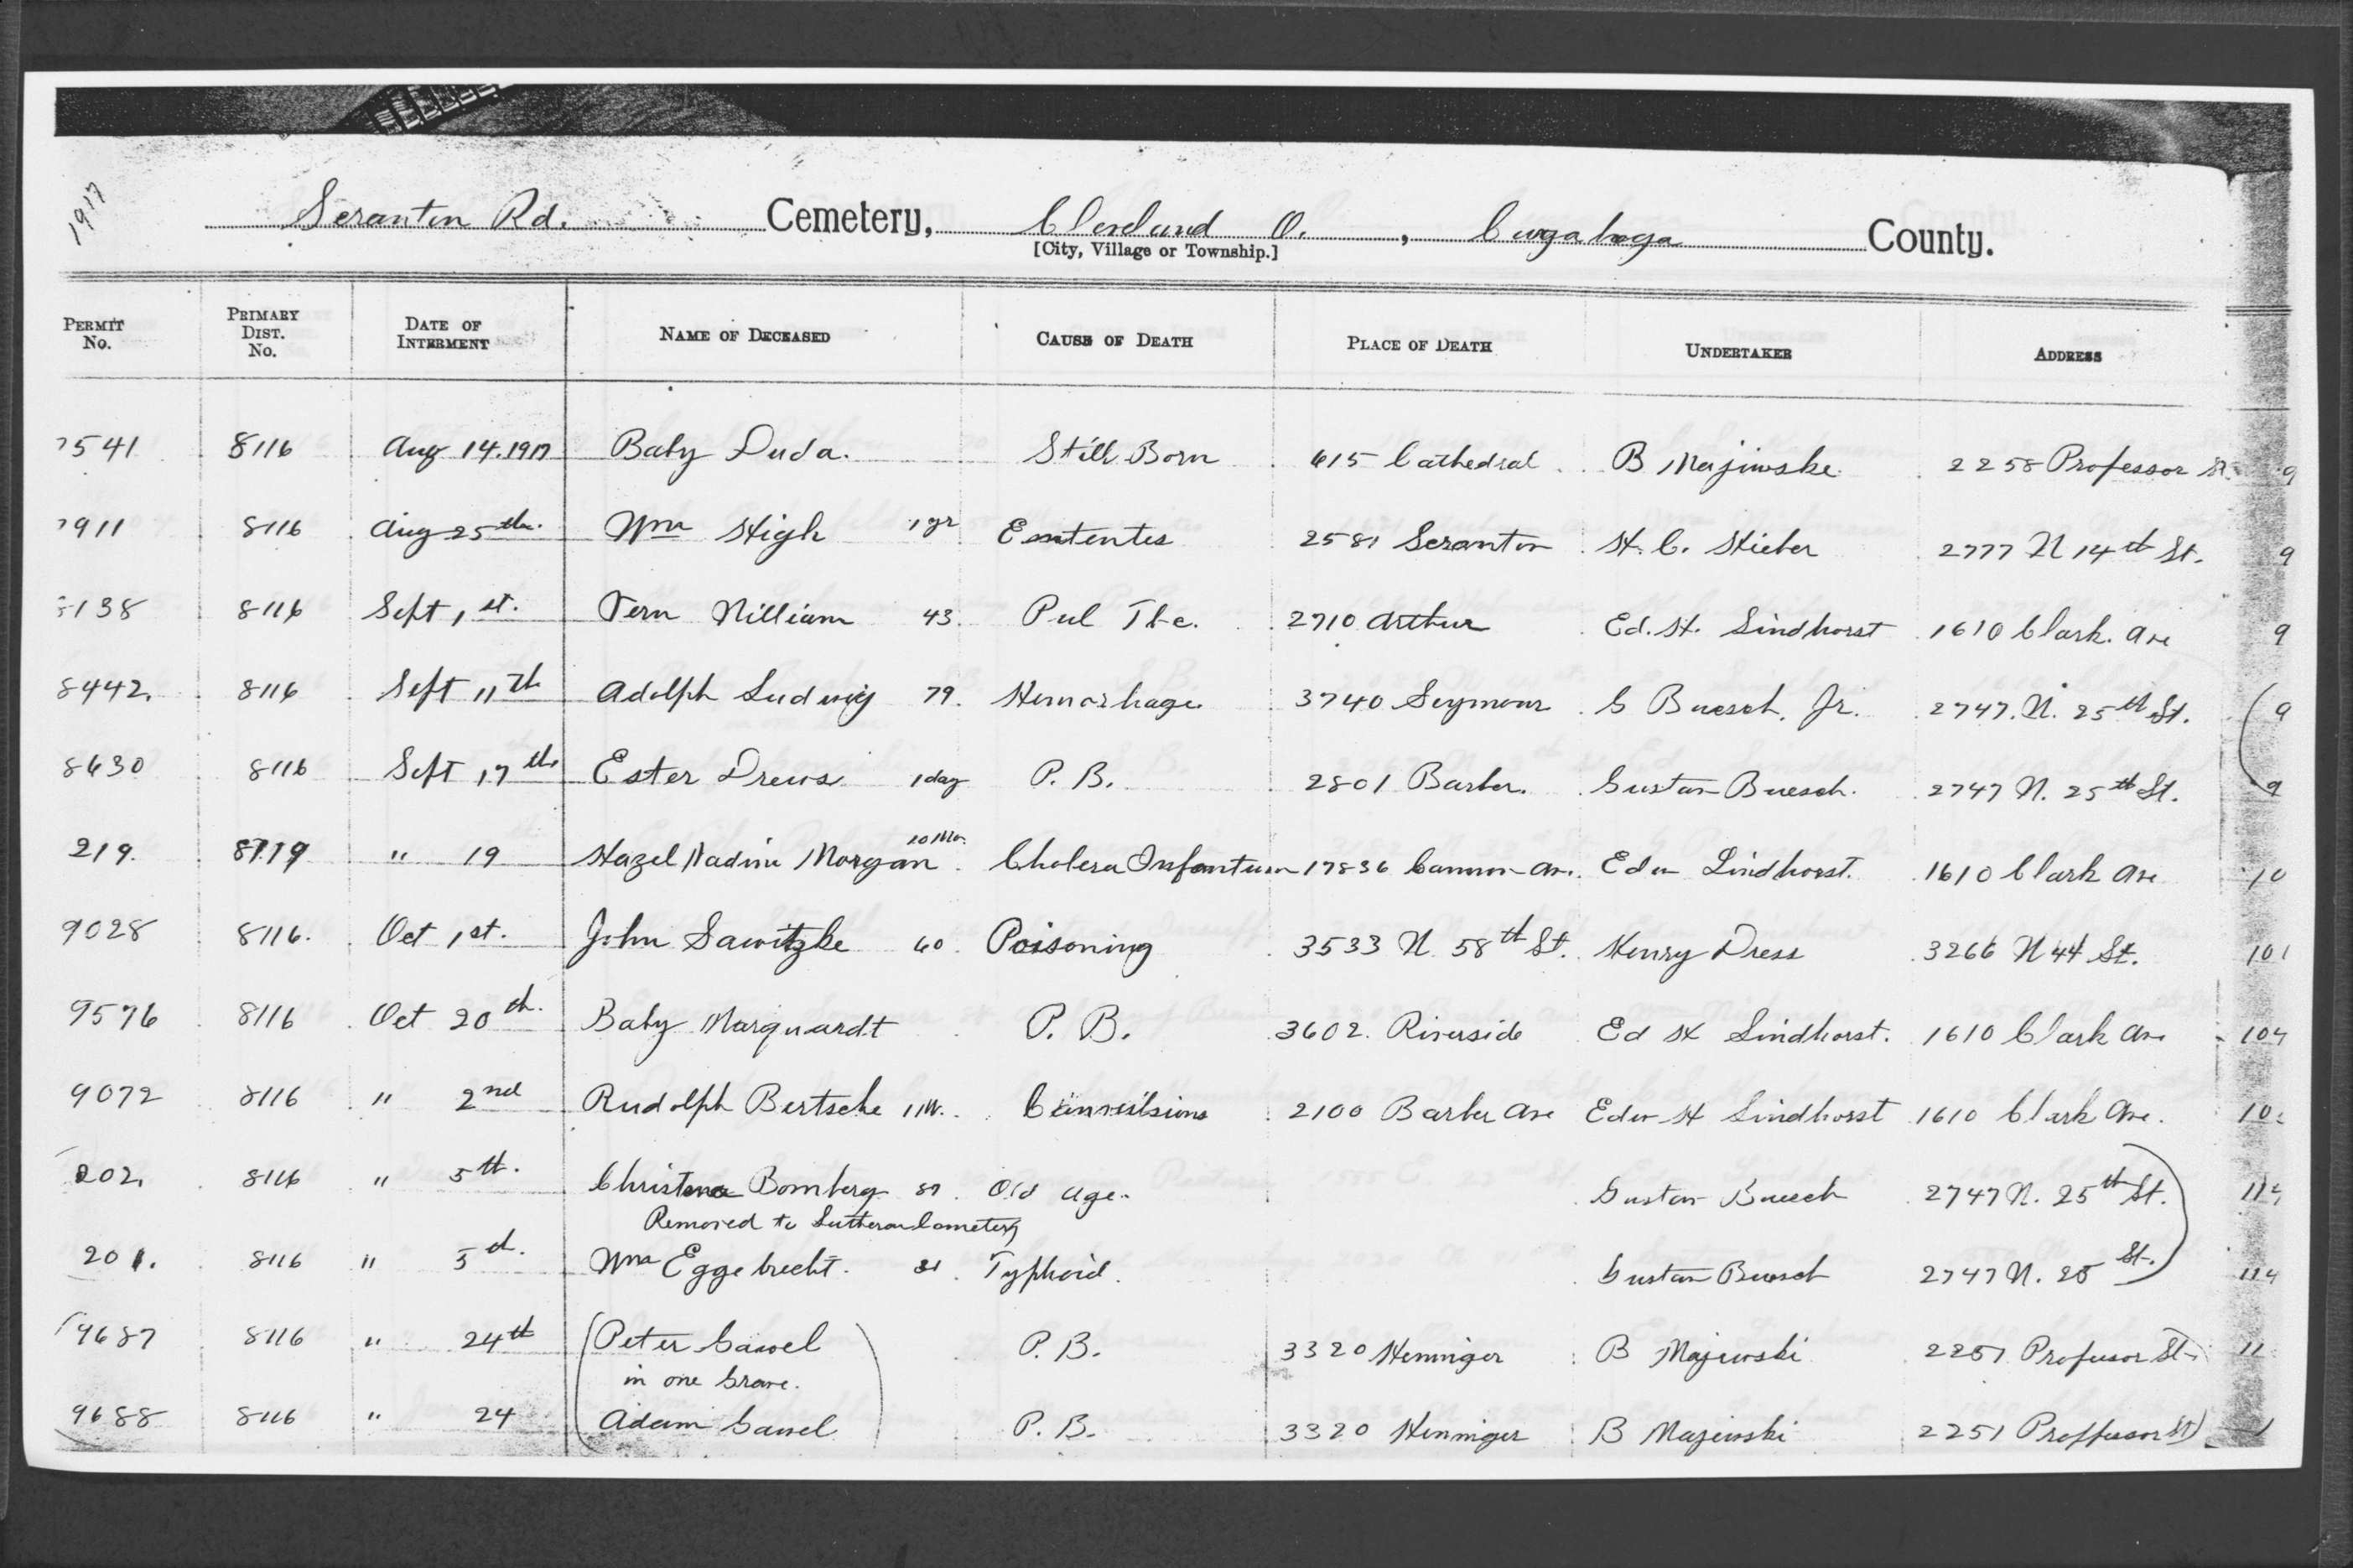 1917
Scranton Rd. Cemetery, Cleveland O., Cuyahoga County.
[City, Village or Township.]
PERMIT No. PRIMARY DIST. No. DATE OF INTERMENT NAME OF DECEASED CAUSE OF DEATH PLACE OF DEATH UNDERTAKER ADDRESS
7541 8116 Aug 14. 1917 Baby Duda. Still Born 615 Cathedral B Majiwske 2258 Professor St. 9
7911 8116 Aug 25th. Wm High 1 yr 2581 Scranton H. C. Hieber 2777 W 14th St. 9
8138 8116 Sept 1st. William 43. Pul Tbc. 2710 Arthur Ed. H. Lindhorst 1610 Clark. Ave 9
8442. 8116 Sept 11th Adolph Ludwig 79. Hemorhage 3740 Seymour G Buesch, Jr. 2747. W. 25th St. 9
8630 8116 Sept 17th Ester Drews 1 day P. B. 2801 Barber. Gustav Buesch. 2747 W. 25th St. 9
219. 8719 " 19 Hazel Nadine Morgan 10 Mo. Cholera Infantum 17836 Cannon Av. Edw Lindhorst. 1610 Clark Ave 10
9028 8116. Oct 1st. John Sawitzke 60 Poisoning 3533 W 58th St. Henry Dress 3266 W 44 St. 101
9576 8116 Oct 20th. Baby Marquardt P. B. 3602. Riverside Ed H Lindhorst. 1610 Clark Av. 104
9072 8116 " 2nd Rudolph Bertsche 1 M. Convulsions 2100 Barber Ave Edw H Lindhorst 1610 Clark Ave. 10
202. 8116 " 5th. Christena Bomberg Old Age. Gustav Buesch 2747 W. 25th St. 114
Removed to Lutheran Cemetery
201. 8116 " 5th. Wm Eggebrecht. Typhoid. Gustav Buesch 2747 W. 25 St. 114
9687 8116 " 24th Peter Gawel P. B. 3320 Henninger B Majewski 2251 Professor St. 11
in one Grave.
9688 8116 " 24 Adam Gawel P. B. 3320 Henninger B Majewski 2251 Proffessor St